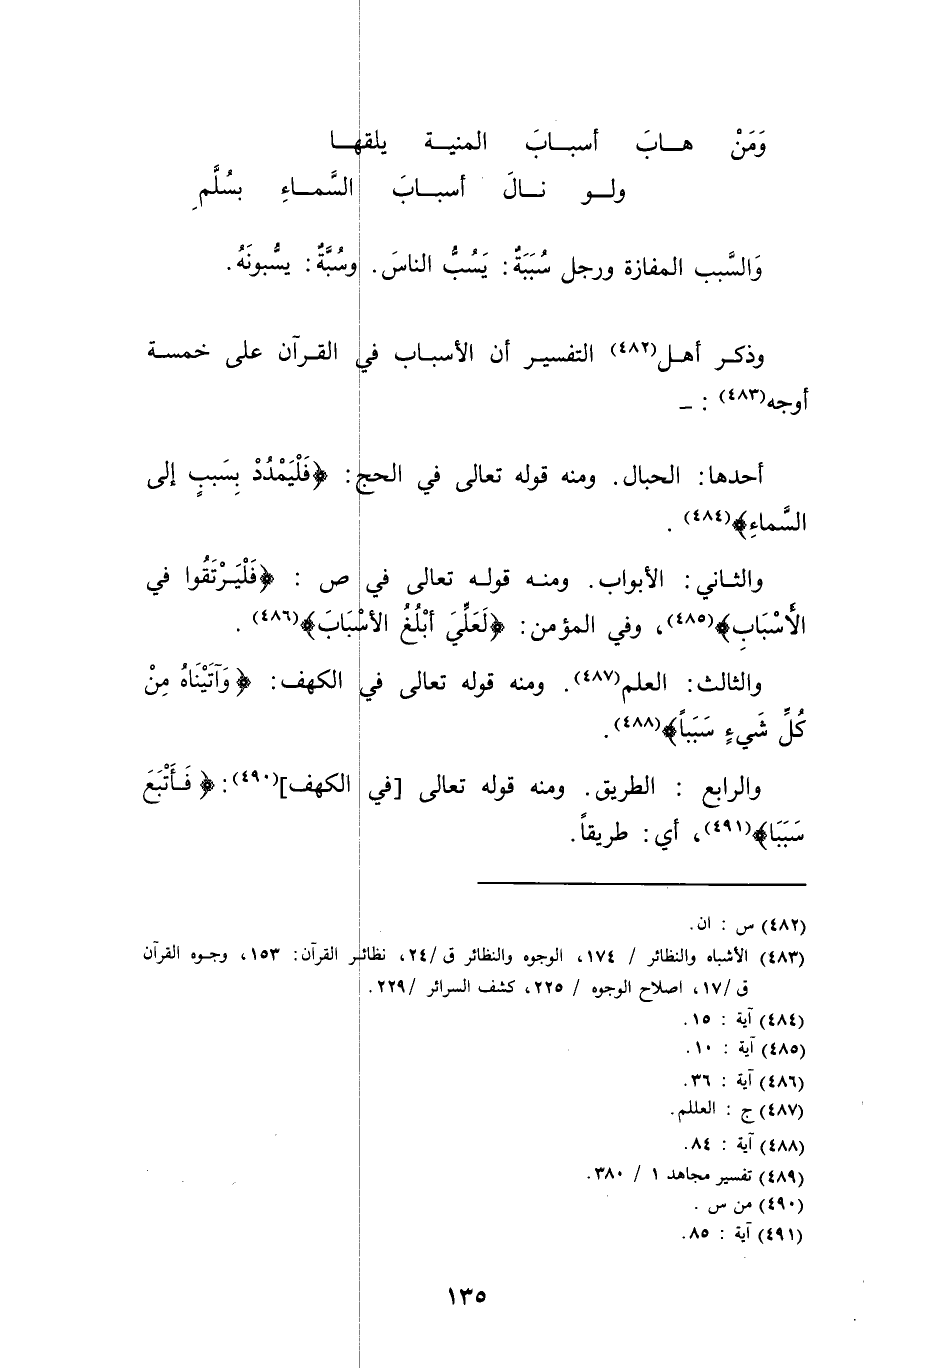 وَمَنْ هـابَ أسبـابَ المنيـة يلقهـا
ولـو نـالَ أسبـابَ السَّمـاءِ بسُلَّمِ
وَالسَّبب المفازة ورجل سُبَبَةٌ: يَسُبُّ الناسَ. وسُبَّةٌ: يسُّبونَهُ.
وذكـر أهـل(٤٨٢) التفسيـر أن الأسبـاب في القـرآن على خمسـة
أوجه(٤٨٣) : ـ
أحدها: الحبال. ومنه قوله تعالى في الحج: ﴿فَلْيَمْدُدْ بِسَببٍ إلى
السَّماءِ﴾(٤٨٤) .
والثـاني: الأبواب. ومنـه قولـه تعالى في ص : ﴿فَلْيَـرْتَقُوا في
الأَسْبَابِ﴾(٤٨٥)، وفي المؤمن: ﴿لَعَلِّيَ أبْلُغُ الأسْبَابَ﴾(٤٨٦) .
والثالث: العلم(٤٨٧). ومنه قوله تعالى في الكهف: ﴿وَآتَيْنَاهُ مِنْ
كُلِّ شَيءٍ سَبَباً﴾(٤٨٨).
والرابع : الطريق. ومنه قوله تعالى [في الكهف](٤٩٠): ﴿فَـأَتْبَعَ
سَبَبَا﴾(٤٩١)، أي: طريقاً.
(٤٨٢) س : ان.
(٤٨٣) الأشباه والنظائر / ١٧٤، الوجوه والنظائر ق/٢٤، نظائـر القرآن: ١٥٣، وجـوه القرآن
ق/١٧، اصلاح الوجوه / ٢٢٥، كشف السرائر /٢٢٩.
(٤٨٤) آية : ١٥.
(٤٨٥) آية : ١٠.
(٤٨٦) آية : ٣٦.
(٤٨٧) ج : العللم.
(٤٨٨) آية : ٨٤.
(٤٨٩) تفسير مجاهد ١ / ٣٨٠.
(٤٩٠) من س .
(٤٩١) آية : ٨٥.
١٣٥